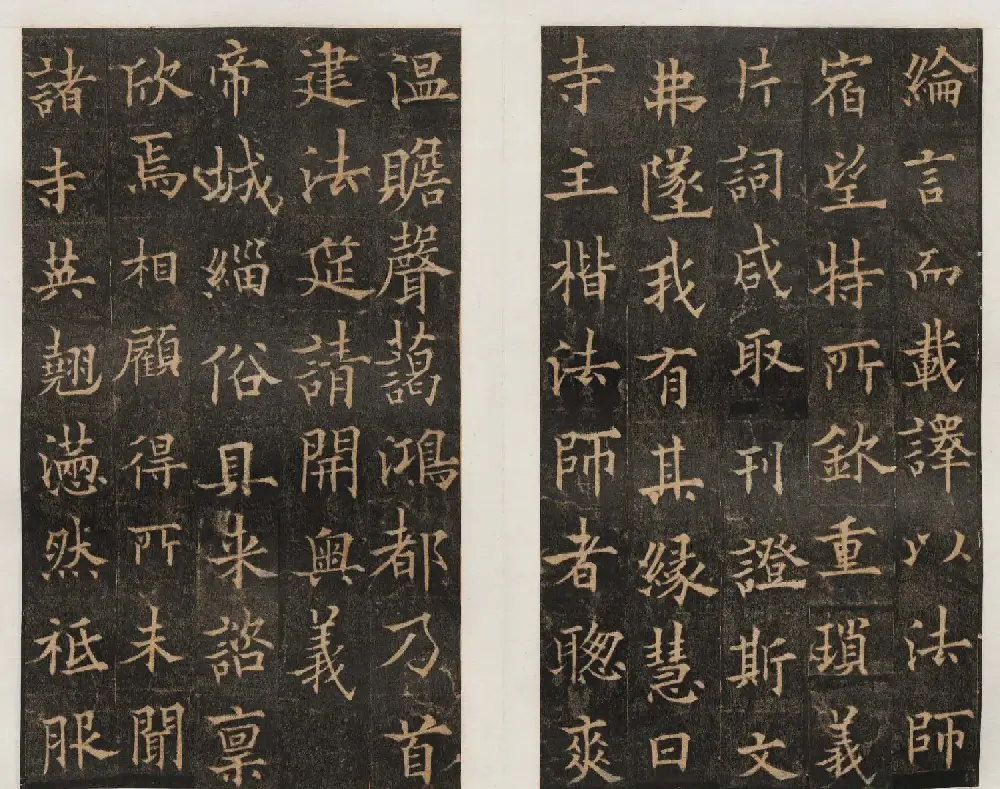 綸言而載譯以法師
宿望特所欽重瑣義
片詞咸取刊證斯文
弗墜我有其緣慧日
寺主楷法師者聰爽
温贍聲藹鴻都乃首
建法筵請開奥義
帝城緇俗具来諮稟
欣焉相顧得所未聞
諸寺英翹懣然祗服